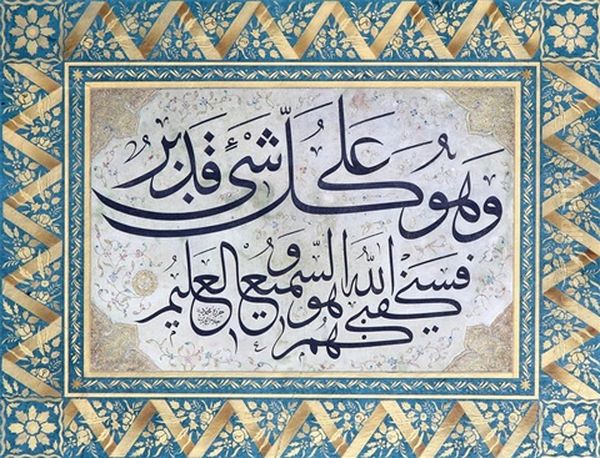 وَهُوَ عَلَى كُلِّ شَيْءٍ قَدِير
فسيكفيكهم الله وهو السميع العليم